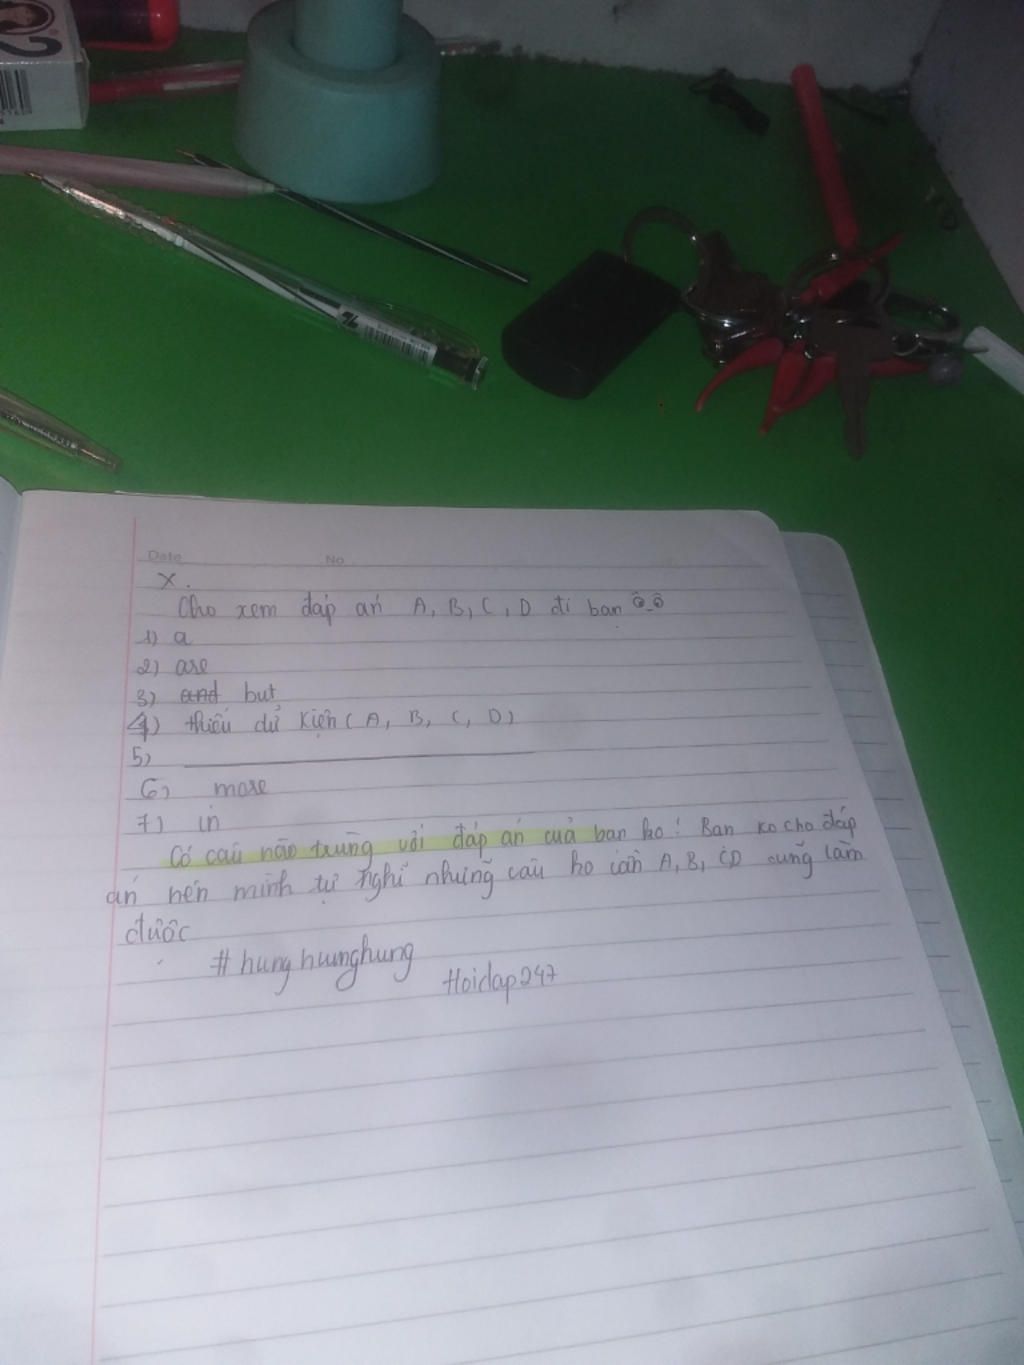 2
Date No
X.
Cho xem đáp án A, B, C, D đi bạn ô_ô
1) a
2) are
3) and but
4) thiếu dữ kiện (A, B, C, D)
5)
6) more
7) in
Có câu nào trùng với đáp án của bạn ko! Bạn ko cho đáp
án nên mình tự nghĩ những câu ko cần A, B, CD cũng làm
được
# hunghunghung
Hoidap247